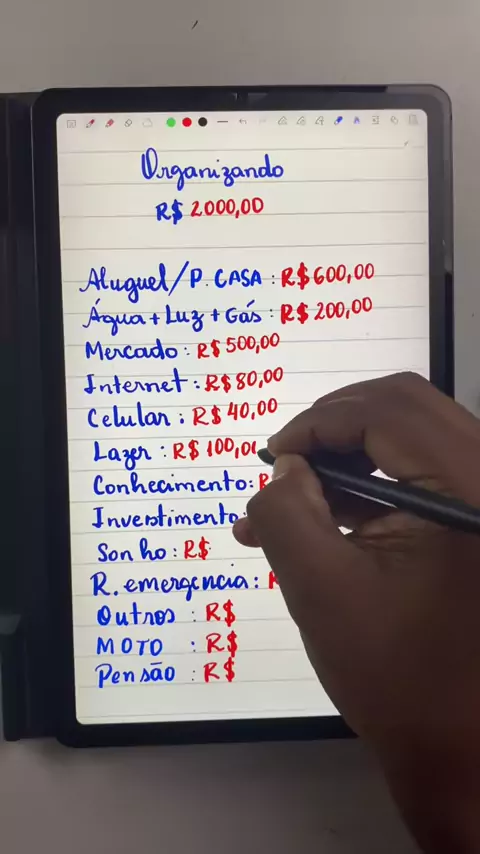 Organizando
R$ 2000,00
Aluguel/P. CASA : R$ 600,00
Água + Luz + Gás : R$ 200,00
Mercado : R$ 500,00
Internet : R$ 80,00
Celular : R$ 40,00
Lazer : R$ 100,00
Conhecimento : R
Investimento :
Sonho : R$
R. emergencia :
Outros : R$
MOTO : R$
Pensão : R$